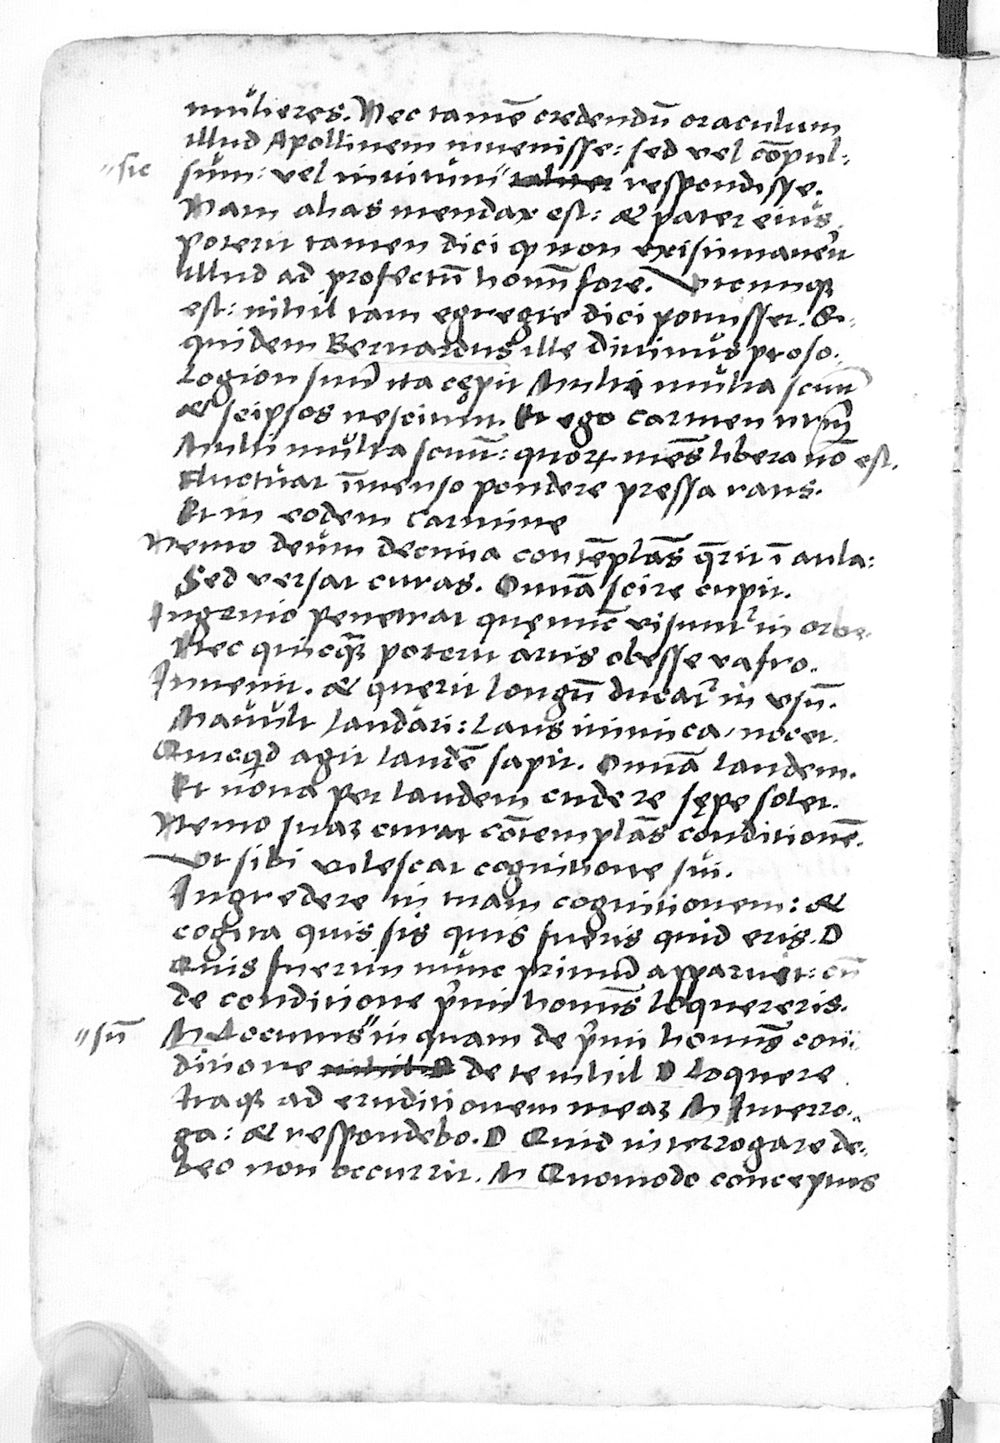 mulieres. Nec tamē credendū oraculum
illud Apollinem inuenisse: sed vel cōpul-
"sic sum: vel inuitum" taliter respondisse.
Nam alias mendax est: & pater eius.
Poterit tamen dici ꝙ non existimauerit
illud ad profectū hoīnū fore. Vtcunqꝫ
est: nihil tam egregie dici potuisset. Et
quidem Bernardus ille diuinus proso-
logion suū ita cępit Multi multa sciūt
& seipsos nesciunt. Et ego carmen
Multi multa sciūt: quoꝝ mēs libera nō est.
Fluctuat īmenso pondere pressa ratis.
Et in eodem carmine
Nemo deum decuiꝰ contēplās q̄rit ī aula:
Sed versat curas. Omnia scire cupit.
Ingenio penetrat quęnūc visuntᷣ in orbe
Nec quicqꝫ poterit artis obesse vafro.
Inuenit. & querit longū ducatᷣ in vsū.
Mauult laudari: laus inimica nocet.
Quicqͥd agit laudē sapit. Omniā laudem.
Et noua per laudem cudere sępe solet.
Nemo suaꝫ curat cōtemplās conditionē.
Vt sibi vilescat cognitione sui.
Ingredere in tuam cognitionem: &
cogita quis sis quis fueris quid eris. D
Quis fuerim nunc primū apparuit: cū
de conditione pͥmi hoīnis loquereris.
"sū M Locutus" inquam de pͥmi hoīnis con-
ditione nihil D de te nihil D Loquere
Itaqꝫ ad eruditionem meaꝫ M Interro-
ga: & respondebo. D Quid interrogare de-
beo non occurrit. M Quomodo conceptus